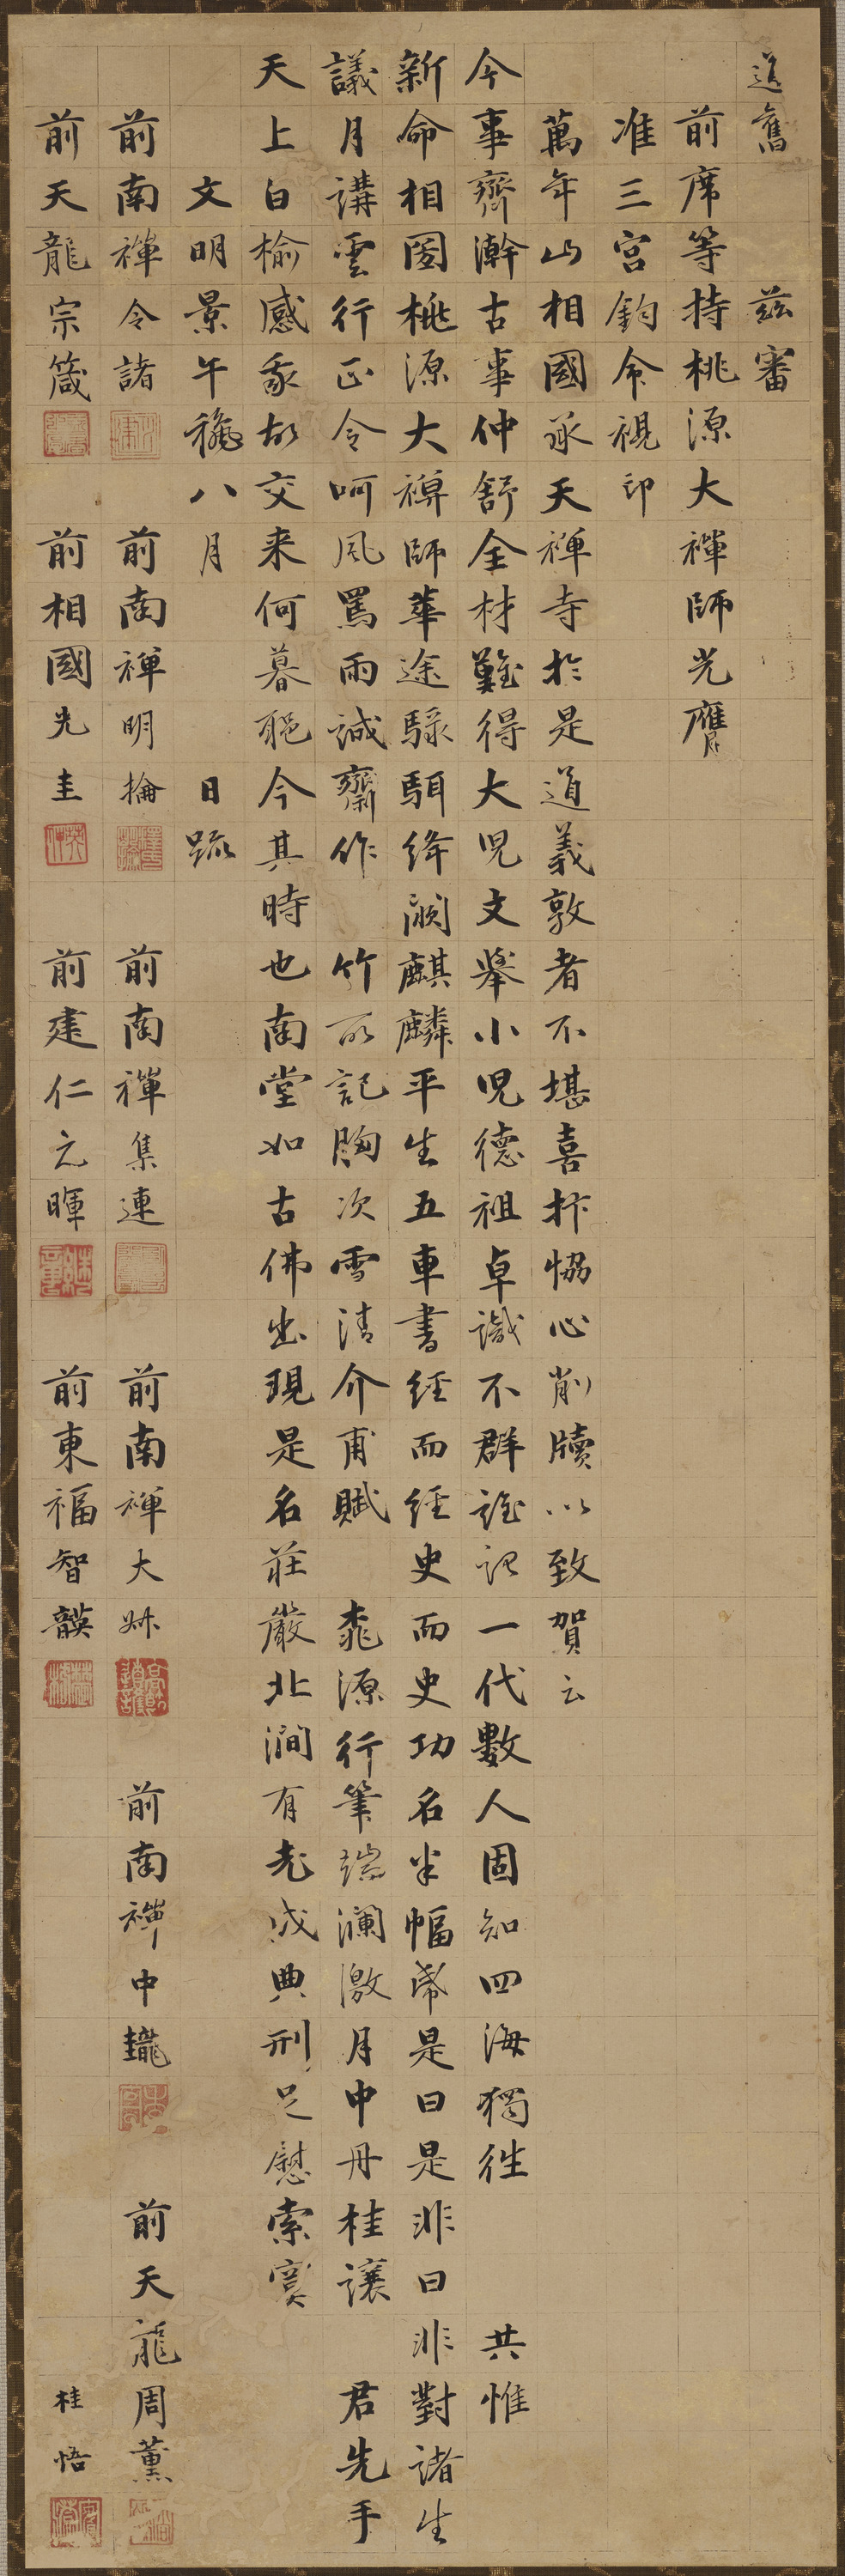 道舊　茲審
前席等持桃源大禅師光膺
准三宮鈞命視印
萬年山相國承天禅寺於是道義敦者不堪喜抃恊心削牘以致賀云
今事齊漸古事仲舒全材難得大児文挙小児德祖卓識不群誰記一代數人固知四海獨往　共惟
新命相國桃源大禅師華途騄駬絳闕麒麟平生五車書経而経史而史功名半幅帋是曰是非曰非對諸生
議月講雲行正令呵風罵雨誠齋作　竹所記胸次雪清介甫賦　桃源行筆端瀾激月中丹桂讓　君先手
天上白榆感我故交来何暮耶今其時也南堂如古佛出現是名莊嚴北澗有老成典刑足慰索寞
文明景午穐八月　日疏
前南禅令諸　前南禅明掄　前南禅集連　前南禅大㭍　前南禅中　前天龍周薫
前天龍宗箴　前相國光圭　前建仁元暉　前東福智　桂悟